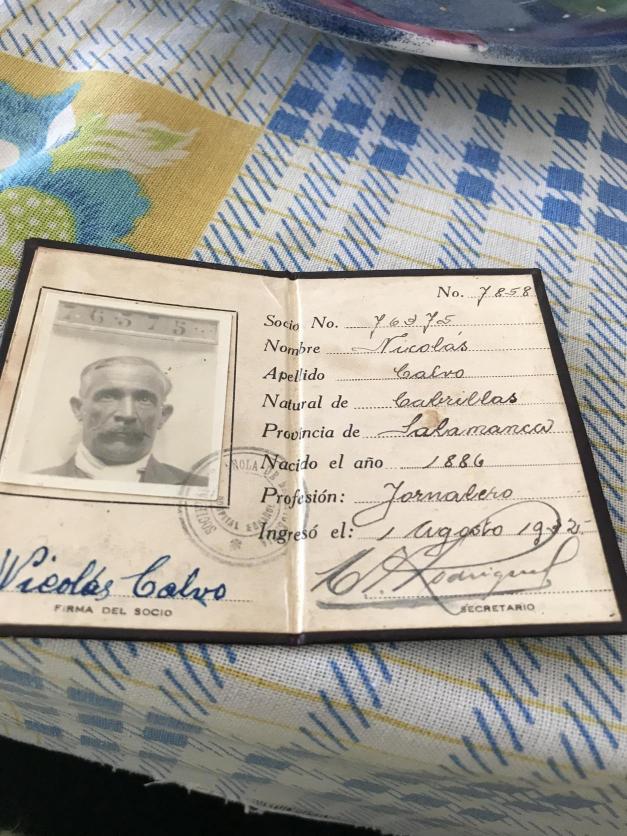 76575
Nicolás Calvo
FIRMA DEL SOCIO
No. 7858
Socio No.
Nombre Nicolás
Apellido Calvo
Natural de Cabrillas
Provincia de Salamanca
Nacido el año 1886
Profesión: Jornalero
Ingresó el: 1 Agosto 1932
Rodriguez
SECRETARIO